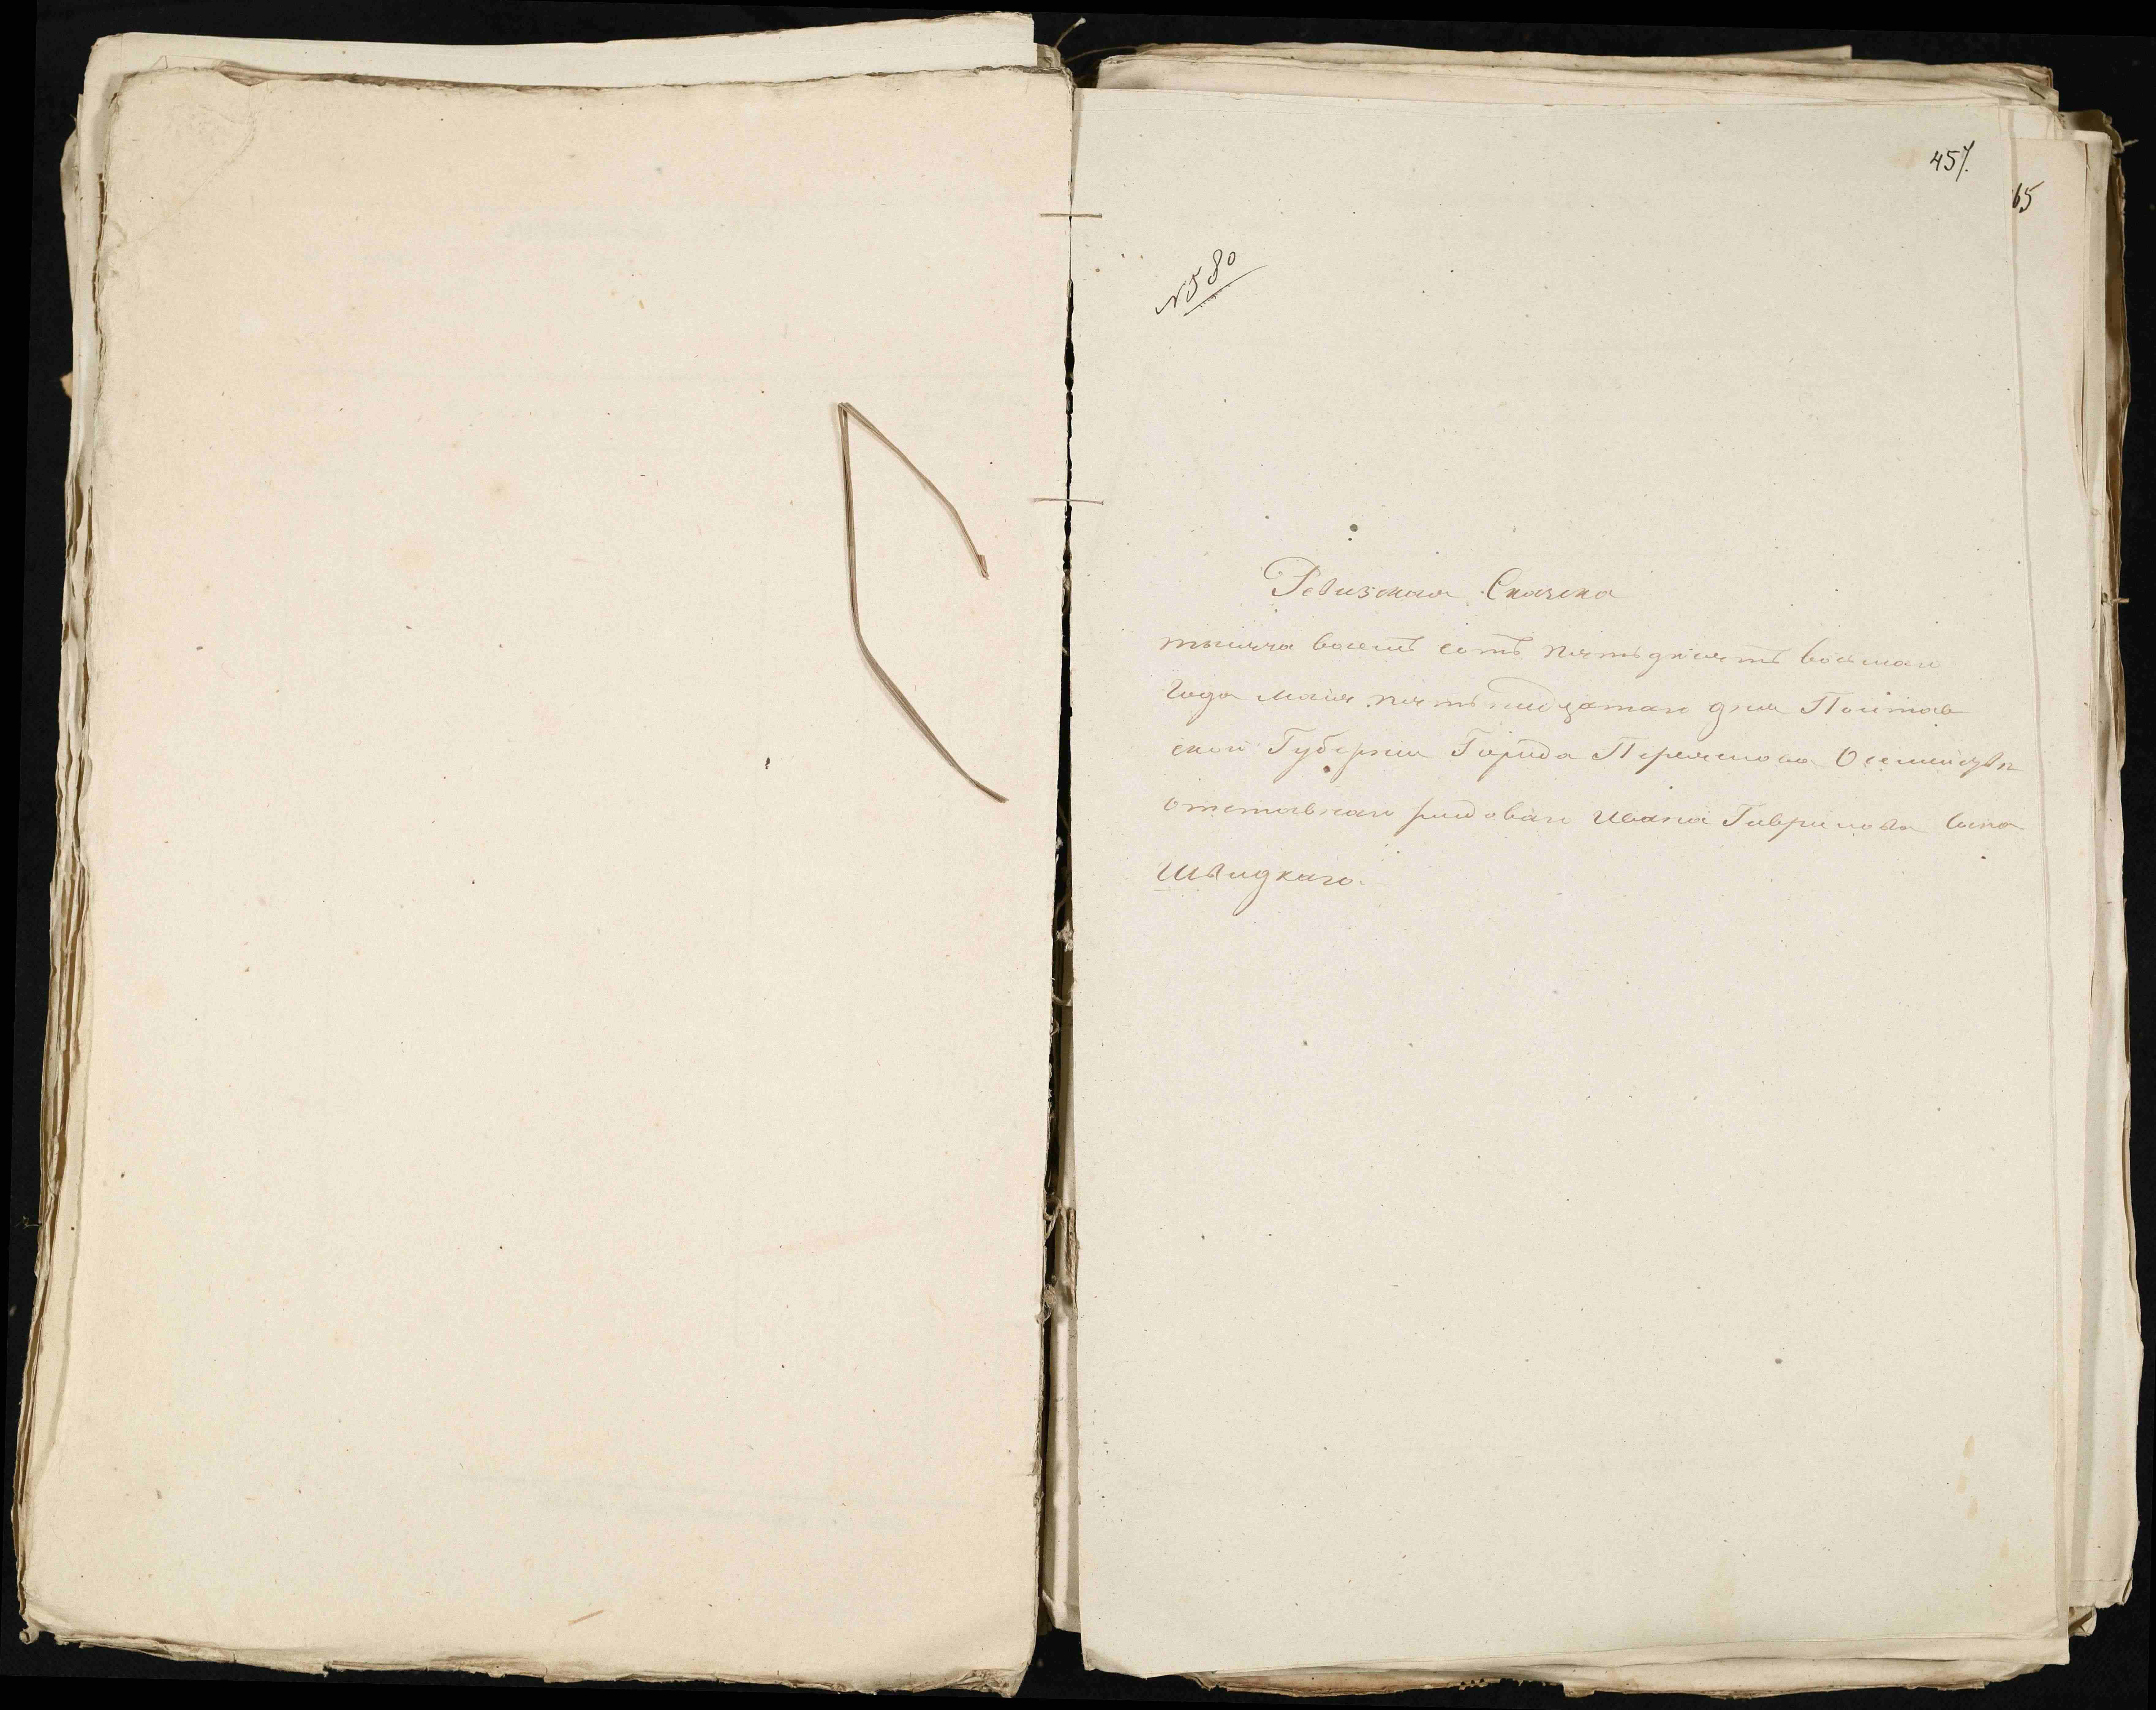 457.
65
№580
Ревизская Сказка
тысяча восемь сотъ пятьдесятъ восьмаго
Года маія пятьнадцатаго дня Полтав
ской Губерніи Города Переяслова О семействѣ
отставнаго рядоваго Ивана Гаврилова сына
Швидкаго.